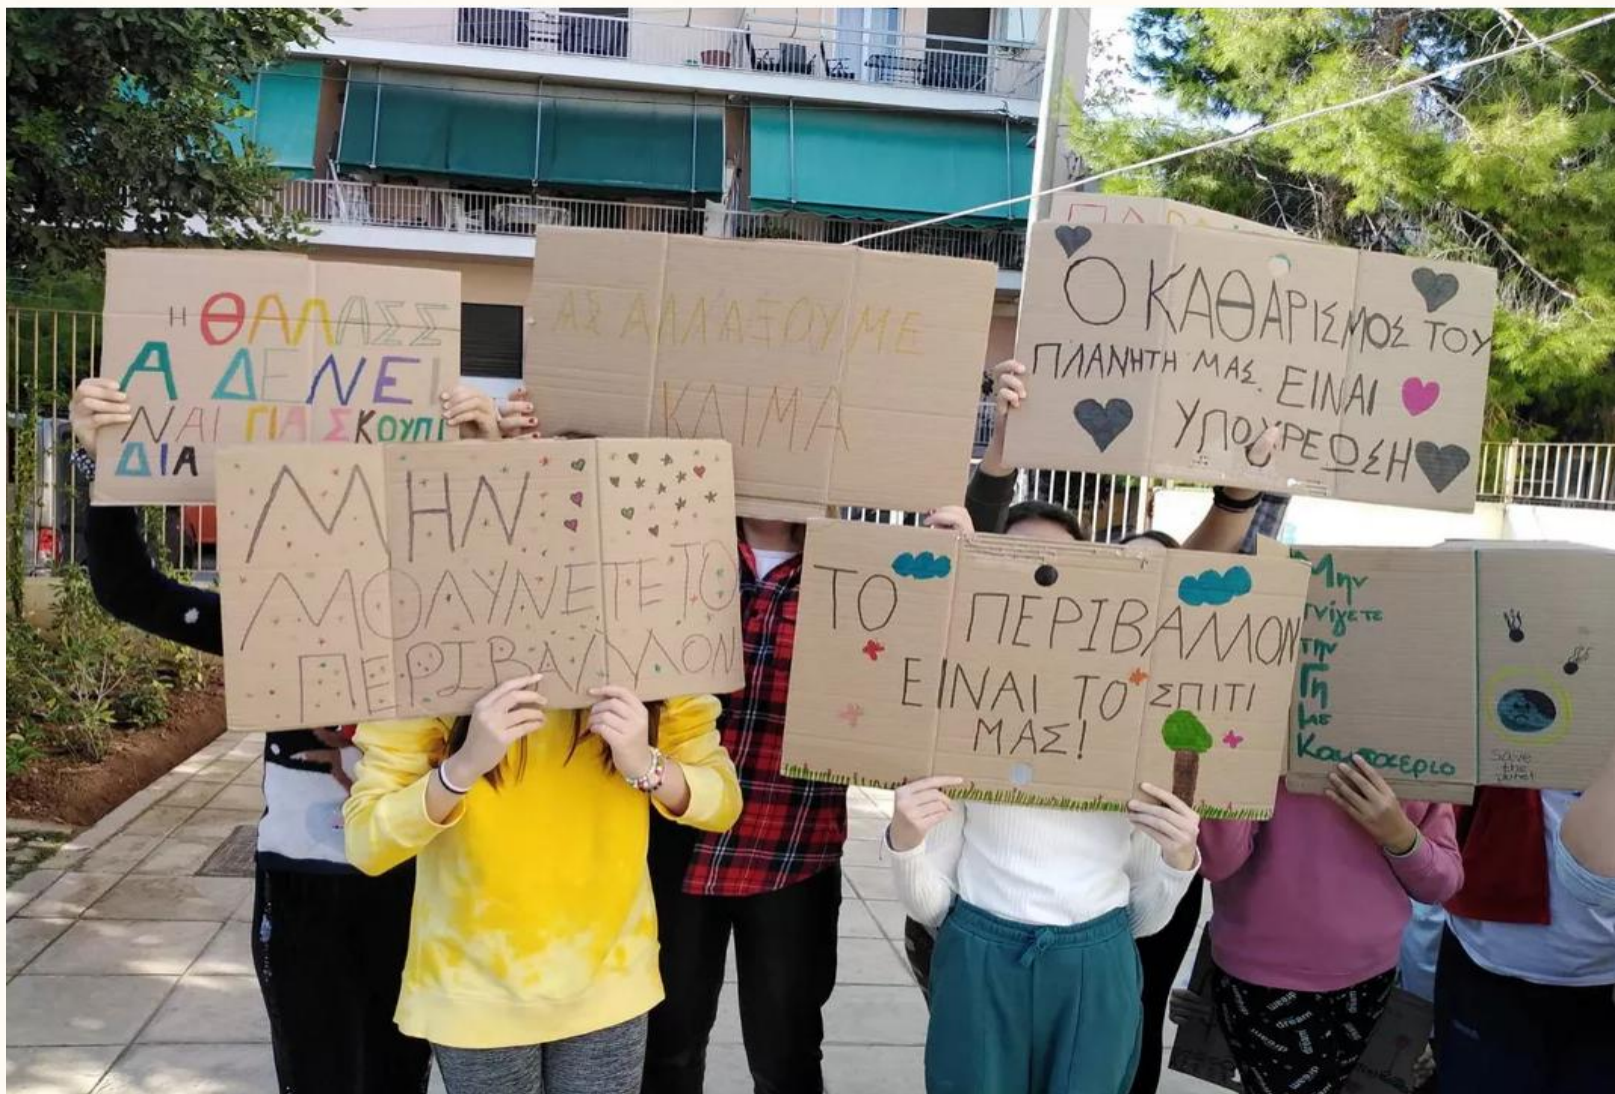 Η ΘΑΛΑΣΣ
Α ΔΕΝ ΕΙ
ΝΑΙ ΓΙΑ ΣΚΟΥΠΙ
ΔΙΑ
ΑΣ ΑΛΛΑΞΟΥΜΕ
ΚΛΙΜΑ
Ο ΚΑΘΑΡΙΣΜΟΣ ΤΟΥ
ΠΛΑΝΗΤΗ ΜΑΣ ΕΙΝΑΙ
ΥΠΟΥΡΕΩΣΗ
ΜΗΝ
ΜΟΛΥΝΕΤΕ ΤΟ
ΠΕΡΙΒΑΛΛΟΝ
ΤΟ ΠΕΡΙΒΑΛΛΟΝ
ΕΙΝΑΙ ΤΟ ΣΠΙΤΙ
ΜΑΣ!
Μην
πνίγετε
την
Γη
με
Save
the
planet
dream